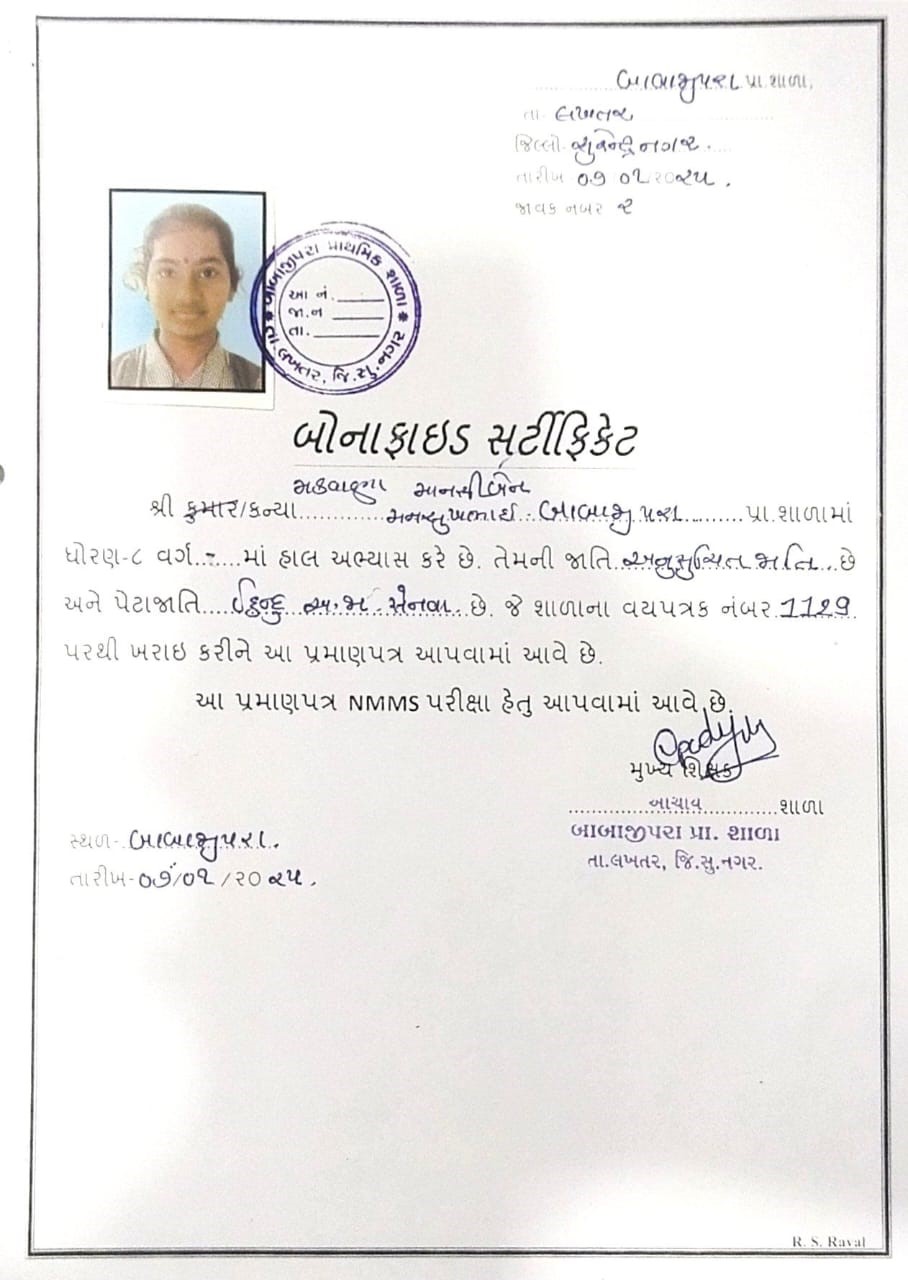 બાબાજીપરા પ્રા.શાળા,
તા- લખતર
જિલ્લો- સુરેન્દ્રનગર.
તારીખ 07 01 2025.
જાવક નબર ૨
બાબાજીપરા પ્રાથમિક શાળા
તા.લખતર, જિ.સુ.નગર
આ નં.
જા.ન
તા.
બોનાફાઇડ સર્ટીફિકેટ
મકવાણા માનસીબેન
શ્રી કુમાર/કન્યા મનસુખભાઈ બાબાજીપરા પ્રા.શાળામાં
ધોરણ-૮ વર્ગ - માં હાલ અભ્યાસ કરે છે. તેમની જાતિ અનુસુચિત જાતિ છે
અને પેટાજાતિ હિન્દુ અ.જા સેનવા છે. જે શાળાના વયપત્રક નંબર 1129
પરથી ખરાઇ કરીને આ પ્રમાણપત્ર આપવામાં આવે છે.
આ પ્રમાણપત્ર NMMS પરીક્ષા હેતુ આપવામાં આવે છે.
મુખ્ય શિક્ષક
શાળા
બાબાજીપરા પ્રા. શાળા
તા.લખતર, જિ.સુ.નગર.
સ્થળ- બાબાજીપરા.
તારીખ-૦૭/૦૧/૨૦૨૫.
R. S. Raval